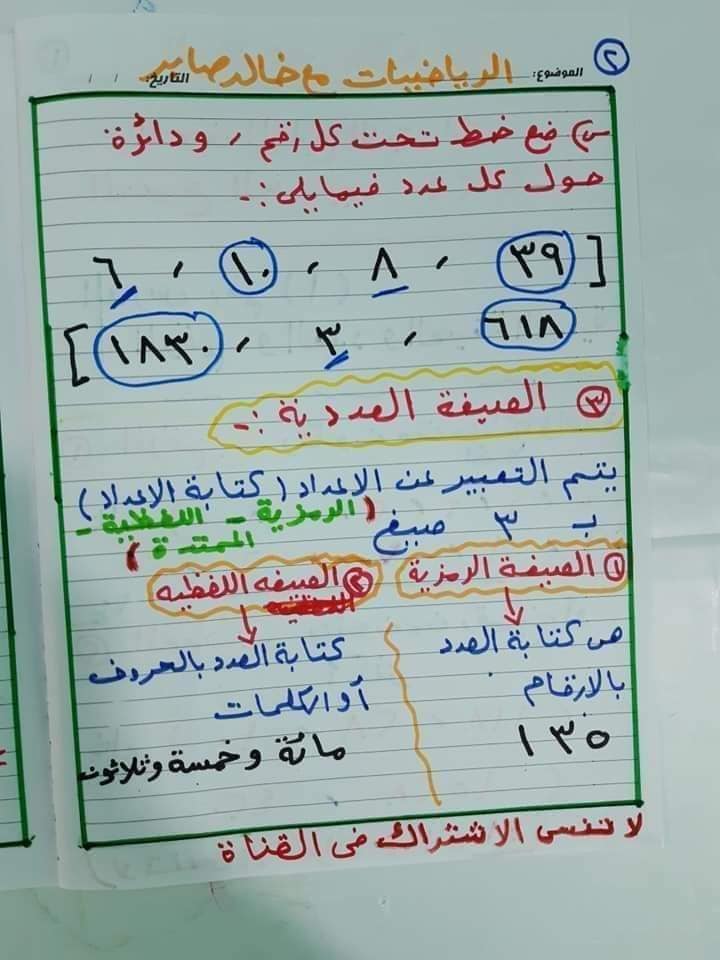 ٢
الموضوع: الرياضيات مع خالد صابر التاريخ: / /
س) ضع خط تحت كل رقم ، ودائرة
حول كل عدد فيما يلي :-
[ ٣٩ ، ٨ ، ١٠ ، ٦
٦١٨ ، ٣ ، ١٨٣٠ ]
٣ الصيغة العددية :-
يتم التعبير عن الاعداد (كتابة الاعداد)
ب ٣ صيغ (الرمزية - اللفظية -
الممتدة)
١ الصيغة الرمزية
هى كتابة العدد
بالارقام
١٣٥
٢ الصيغه اللفظيه
كتابة العدد بالحروف
أو الكلمات
مائة وخمسة وثلاثون
لا تنسى الاشتراك فى القناة